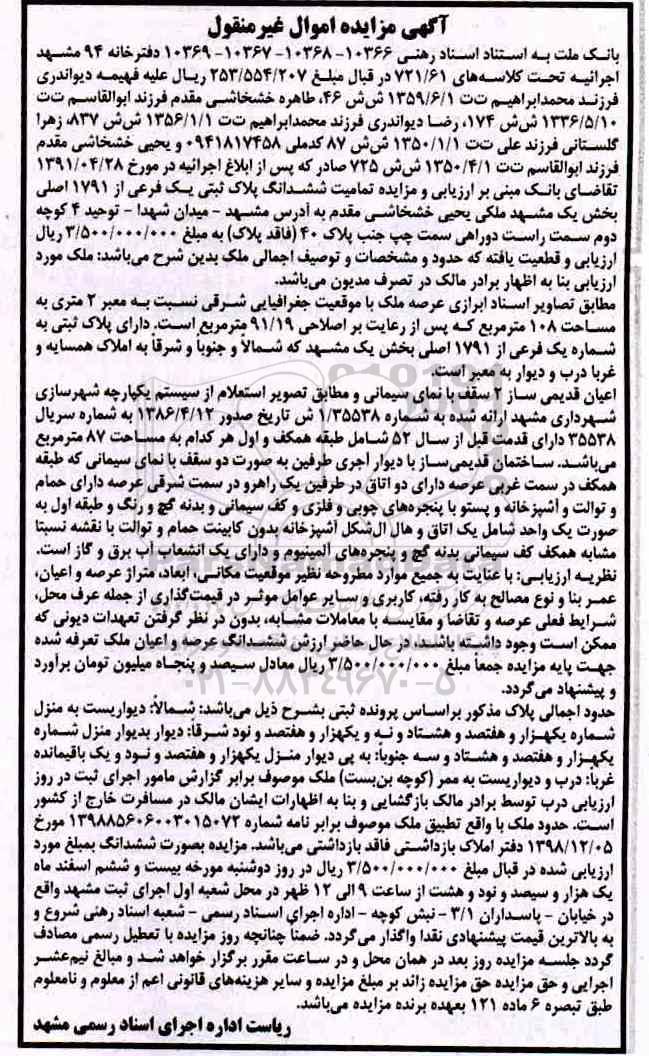 آگهی مزایده اموال غیرمنقول
بانک ملت به استناد اسناد رهنی ۱۰۳۶۶- ۱۰۳۶۸- ۱۰۳۶۷- ۱۰۳۶۹ دفترخانه ۹۴ مشهد
اجرائیه تحت کلاسه‌های ۷۲۱/۶۱ در قبال مبلغ ۲۵۳/۵۵۴/۲۰۷ ریال علیه فهیمه دیواندری
فرزند محمدابراهیم ت‌ت ۱۳۵۹/۶/۱ ش‌ش ۴۶، طاهره خشخاشی مقدم فرزند ابوالقاسم ت‌ت
۱۳۳۶/۵/۱۰ ش‌ش ۱۷۴، رضا دیواندری فرزند محمدابراهیم ت‌ت ۱۳۵۶/۱/۱ ش‌ش ۸۳۷، زهرا
گلستانی فرزند علی ت‌ت ۱۳۵۰/۱/۱ ش‌ش ۸۷ کدملی ۰۹۴۱۸۱۷۴۵۸ و یحیی خشخاشی مقدم
فرزند ابوالقاسم ت‌ت ۱۳۵۰/۴/۱ ش‌ش ۷۲۵ صادر که پس از ابلاغ اجرائیه در مورخ ۱۳۹۱/۰۴/۲۸
تقاضای بانک مبنی بر ارزیابی و مزایده تمامیت ششدانگ پلاک ثبتی یک فرعی از ۱۷۹۱ اصلی
بخش یک مشهد ملکی یحیی خشخاشی مقدم به آدرس مشهد - میدان شهدا - توحید ۴ کوچه
دوم سمت راست دوراهی سمت چپ جنب پلاک ۴۰ (فاقد پلاک) به مبلغ ۳/۵۰۰/۰۰۰/۰۰۰ ریال
ارزیابی و قطعیت یافته که حدود و مشخصات و توصیف اجمالی ملک بدین شرح می‌باشد: ملک مورد
ارزیابی بنا به اظهار برادر مالک در تصرف مدیون می‌باشد.
مطابق تصاویر اسناد ابرازی عرصه ملک با موقعیت جغرافیایی شرقی نسبت به معبر ۲ متری به
مساحت ۱۰۸ مترمربع که پس از رعایت بر اصلاحی ۹۱/۱۹ مترمربع است. دارای پلاک ثبتی به
شماره یک فرعی از ۱۷۹۱ اصلی بخش یک مشهد که شمالاً و جنوباً و شرقا به املاک همسایه و
غربا درب و دیوار به معبر است.
اعیان قدیمی ساز ۲ سقف با نمای سیمانی و مطابق تصویر استعلام از سیستم یکپارچه شهرسازی
شهرداری مشهد ارائه شده به شماره ۱/۳۵۵۳۸ ش تاریخ صدور ۱۳۸۶/۴/۱۲ به شماره سریال
۳۵۵۳۸ دارای قدمت قبل از سال ۵۲ شامل طبقه همکف و اول هر کدام به مساحت ۸۷ مترمربع
می‌باشد. ساختمان قدیمی‌ساز با دیوار آجری طرفین به صورت دو سقف با نمای سیمانی که طبقه
همکف در سمت غربی عرصه دارای دو اتاق در طرفین یک راهرو در سمت شرقی عرصه دارای حمام
و توالت و آشپزخانه و پستو با پنجره‌های چوبی و فلزی و کف سیمانی و بدنه گچ و رنگ و طبقه اول به
صورت یک واحد شامل یک اتاق و هال ال‌شکل آشپزخانه بدون کابینت حمام و توالت با نقشه نسبتا
مشابه همکف کف سیمانی بدنه گچ و پنجره‌های آلمینیوم و دارای یک انشعاب آب برق و گاز است.
نظریه ارزیابی: با عنایت به جمیع موارد مطروحه نظیر موقعیت مکانی، ابعاد، متراژ عرصه و اعیان،
عمر بنا و نوع مصالح به کار رفته، کاربری و سایر عوامل موثر در قیمت‌گذاری از جمله عرف محل،
شرایط فعلی عرصه و تقاضا و مقایسه با معاملات مشابه، بدون در نظر گرفتن تعهدات دیونی که
ممکن است وجود داشته باشد. در حال حاضر ارزش ششدانگ عرصه و اعیان ملک تعرفه شده
جهت پایه مزایده جمعاً مبلغ ۳/۵۰۰/۰۰۰/۰۰۰ ریال معادل سیصد و پنجاه میلیون تومان برآورد
و پیشنهاد می‌گردد.
حدود اجمالی پلاک مذکور براساس پرونده ثبتی بشرح ذیل می‌باشد: شمالاً: دیواریست به منزل
شماره یکهزار و هفتصد و هشتاد و نه و یکهزار و هفتصد و نود شرقا: دیوار بدیوار منزل شماره
یکهزار و هفتصد و هشتاد و سه جنوباً: به پی دیوار منزل یکهزار و هفتصد و نود و یک باقیمانده
غربا: درب و دیواریست به ممر (کوچه بن‌بست) ملک موصوف برابر گزارش مامور اجرای ثبت در روز
ارزیابی درب توسط برادر مالک بازگشایی و بنا به اظهارات ایشان مالک در مسافرت خارج از کشور
است. حدود ملک با واقع تطبیق ملک موصوف برابر نامه شماره ۱۳۹۸۸۵۶۰۶۰۰۳۰۱۵۰۷۲ مورخ
۱۳۹۸/۱۲/۰۵ دفتر املاک بازداشتی فاقد بازداشتی می‌باشد. مزایده بصورت ششدانگ بمبلغ مورد
ارزیابی شده در قبال مبلغ ۳/۵۰۰/۰۰۰/۰۰۰ ریال در روز دوشنبه مورخه بیست و ششم اسفند ماه
یک هزار و سیصد و نود و هشت از ساعت ۹ الی ۱۲ ظهر در محل شعبه اول اجرای ثبت مشهد واقع
در خیابان - پاسداران ۳/۱ - نبش کوچه - اداره اجرای اسناد رسمی - شعبه اسناد رهنی شروع و
به بالاترین قیمت پیشنهادی نقدا واگذار می‌گردد. ضمناً چنانچه روز مزایده با تعطیل رسمی مصادف
گردد جلسه مزایده روز بعد در همان محل و در ساعت مقرر برگزار خواهد شد و مبالغ نیم‌عشر
اجرایی و حق مزایده حق مزایده زائد بر مبلغ مزایده و سایر هزینه‌های قانونی اعم از معلوم و نامعلوم
طبق تبصره ۶ ماده ۱۲۱ بعهده برنده مزایده می‌باشد.
ریاست اداره اجرای اسناد رسمی مشهد
۰۲۱-۸۸۳۴۹۶۷۰-۵